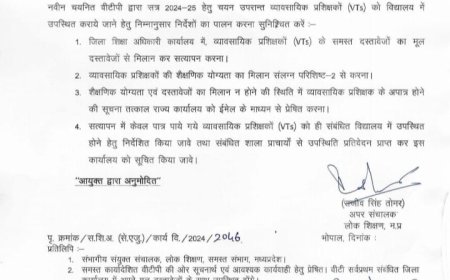 नवीन चयनित वीटीपी द्वारा सत्र 2024-25 हेतु चयन उपरान्त व्यावसायिक प्रशिक्षकों (VTs) को विद्यालय में
उपस्थित कराये जाने हेतु निम्नानुसार निर्देशों का पालन करना सुनिश्चित करें :-
1. जिला शिक्षा अधिकारी कार्यालय में, व्यावसायिक प्रशिक्षकों (VTs) के समस्त दस्तावेजों का मूल
दस्तावेजों से मिलान कर सत्यापन करना।
2. व्यावसायिक प्रशिक्षकों की शैक्षणिक योग्यता का मिलान संलग्न परिशिष्ट-2 से करना।
3. शैक्षणिक योग्यता एवं दस्तावेजों का मिलान न होने की स्थिति में व्यावसायिक प्रशिक्षक के अपात्र होने
की सूचना तत्काल राज्य कार्यालय को ईमेल के माध्यन से प्रेषित करना।
4. सत्यापन में केवल पात्र पाये गये व्यावसायिक प्रशिक्षकों (VTs) को ही संबंधित विद्यालय में उपस्थित
होने हेतु निर्देशित किया जावे तथा संबंधित शाला प्राचार्य से उपस्थिति प्रतिवेदन प्राप्त कर इस
कार्यालय को सूचित किया जावे।
"आयुक्त द्वारा अनुमोदित"
(संजीव सिंह तोमर)
अपर संचालक
लोक शिक्षण, म.प्र
पृ. क्रमांक/स.शि.अ. (से.एजु)/कार्य वि./2024/2046 भोपाल, दिनांक :
प्रतिलिपि :-
1. संभागीय संयुक्त संचालक, लोक शिक्षण, समस्त संभाग, मध्यप्रदेश।
2. समस्त कार्यादेशित वीटीपी की ओर सूचनार्थ एवं आवश्यक कार्यवाही हेतु प्रेषित। वीटी सर्वप्रथम संबंधित जिला